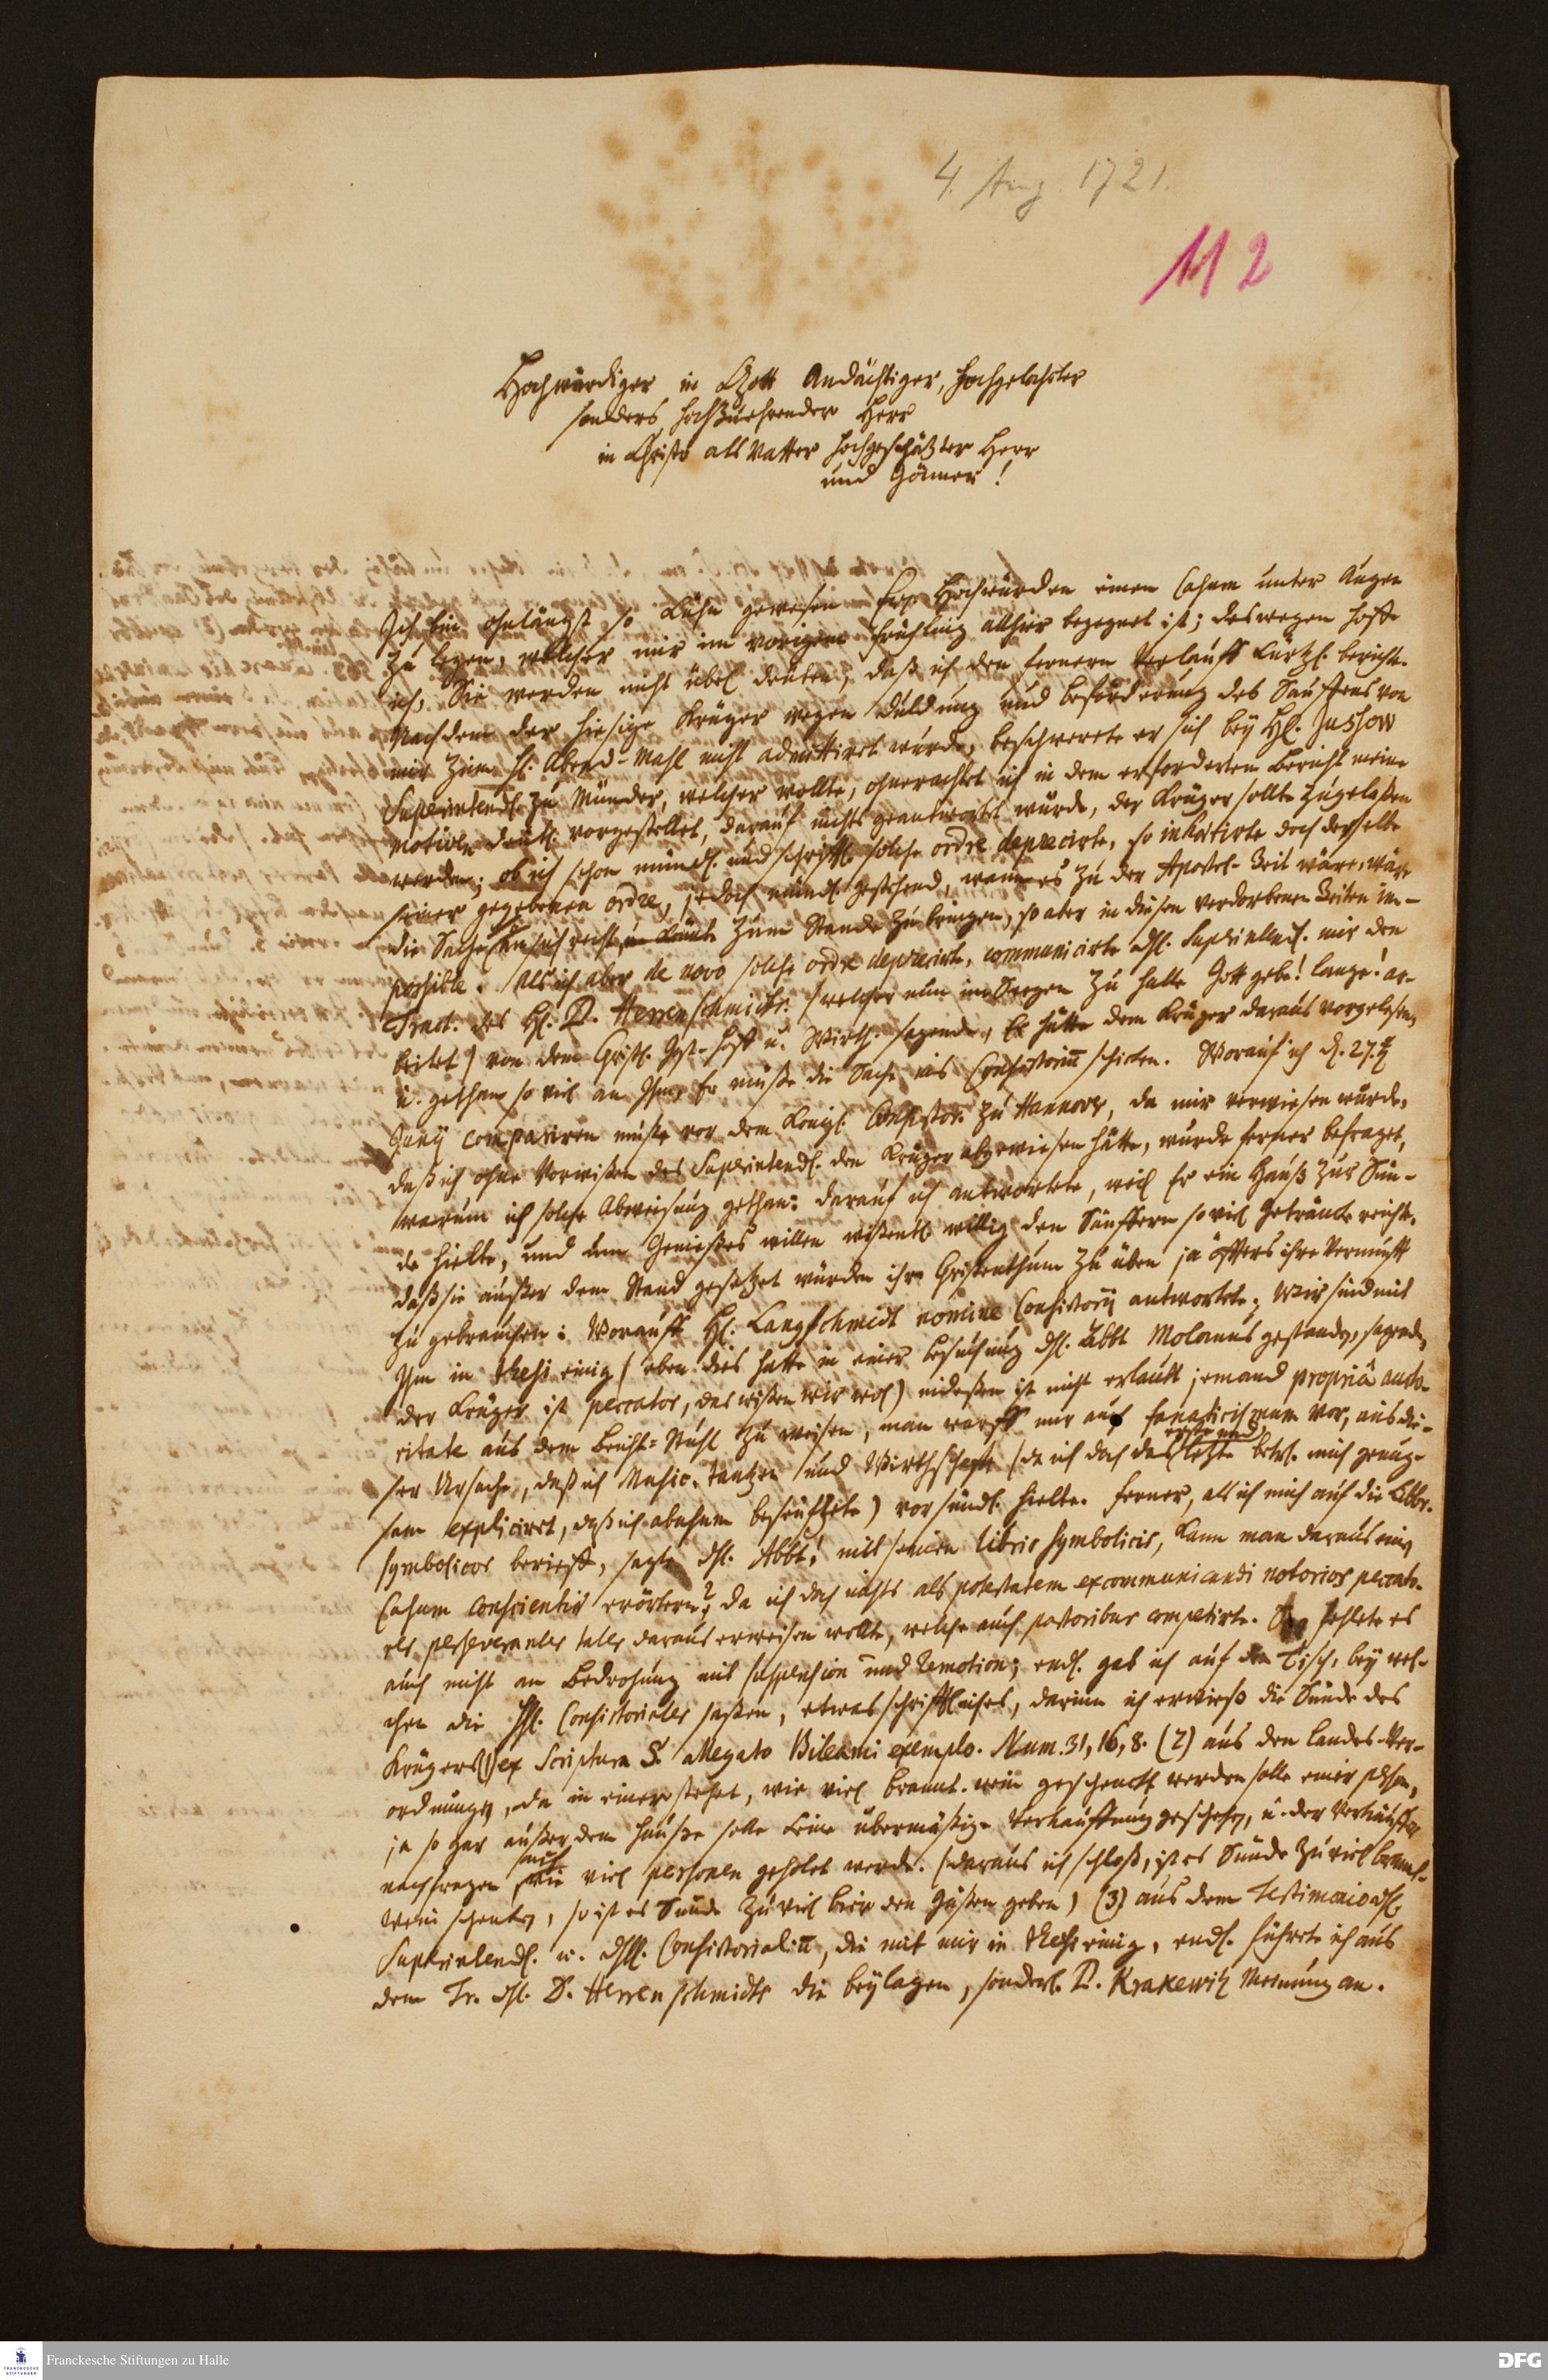 4. Aug. 1721.
112
Hochwürdiger in Gott Andächtiger, hochgelahrter
sonders hochzuehrender Herr
in Christo als Vatter hochgeschätzter Herr
und Gönner!
Ich bin ohnlängst so kühn gewesen Ew. Hochwürden einen Casum unter Augen
zu legen, welcher mir im vorigem Frühling allhier begegnet ist; deswegen hoffe
ich, Sie werden nicht übel deuten, daß ich den fernern Verlauff kürtzl. berichte.
Nachdem der hiesige Krüger wegen Duldung und beförderung des Sauffens von
mir zum hl. Abend-Mahl nicht admittiret wurde, beschwerete er sich bey Hl. Jussow
Superintendl. zu Münder, welcher wollte, ohnerachtet ich in dem erforderten Bericht meine
motiven deutl. vorgestellet, darauf nichts geantwortet wurde, der Krüger sollte zugelaßen
werden; ob ich schon mündl. und schrifftl. solche ordre deprecirte, so inhærirte doch derselbe
seiner gegebenen ordre, jedoch mündl. gestehend, wenn es zu der Apostel-Zeit wäre, wäre
die Sache an sich recht, zum Stande zu bringen, so aber in diesen verdorbenen Zeiten im-
possible. Als ich aber de novo solche ordre deprecirte, communicirte dHl. Superintend. mir den
Tract. des Hl. D. Herrenschmidts (welcher nun im Seegen zu Halle Gott gebe! lange! ar-
beitet) von dem Christl. Gast-Hoff u. Wirth. sagende, Er hätte dem Krüger daraus vorgelesen,
u. gethan so viel an Ihm, Er müße die Sache ins Consistoriū schicken. Worauf ich d. 27.
Junÿ compariren muste vor dem Königl. Consistor. zu Hannover, da mir verwiesen wurde,
daß ich ohne Vorwißen des Superintendl. den Krüger abgewiesen hätte, wurde ferner befraget,
warum ich solche Abweisung gethan: darauf ich antwortete, weil Er ein Hauß zur Sün-
de hielte, und um Genießes willen wißentl. willig den Säuffern so viel Geträncke reichte,
daß sie außer dem Stand gesetzet würden ihr Christenthum zu üben ja öffters ihre Vernunfft
zu gebrauchen: Worauff Hl. Langschmidt nomine Consistorÿ antwortete; Wir sind mit
Ihm in thesi einig (eben dies hatte in einer besuchung dHl. Abbt Molanus gestanden, sagende
der Krüger ist peccator, das wißen wir wol) indeßen ist nicht erlaubt jemand propriâ auto-
ritate aus dem Beicht-Stuhl zu weisen, man warff mir auch fanaticismum vor, aus die-
ser Ursache, daß ich Music. Tantzen und Wirthschafft (da ich doch das erste und letzte betr. mich genug-
sam expliciret, daß ich abusum beseuffzete) vor sündl. hielte. Ferner, als ich mich auf die Libbr.
symbolicos berieff, sagte dHl. Abbt! mit seinen libris symbolicis, kann man daraus einen
Casum conscientiæ erörtern? da ich doch nichts als potestatem excommunicandi notorios peccato-
res perseverantes tales daraus erweisen wollte, welche auch pastoribus competirte. Da fehlete es
auch nicht an Bedrohung mit suspension und remotion; endl. gab ich auf den Tisch, bey wel-
chen die HHl. Consistoriales saßen, etwas schrifftliches, darinn ich erwieß die Sünde des
Krügers (1) ex Scriptura S. allegato Bileami exemplo. Num. 31, 16, 8. (2) aus den Landes-Ver-
ordnungen, da in einer stehet, wie viel brannt-wein geschenckt werden solle einer Person,
ja so gar außer dem Hauße solle keine übermäßige Verkauffung geschehen, u. der Verkäuffer
nachfragen auf wie viel personen geholet werde. (daraus ich schloß, ist es Sünde zu viel brannt-
wein schencken, so ist es Sünde zu viel bier den Gästen geben) (3) aus dem Testimonio dHl.
Superintendl. u. dHHl. Consistorialiū, die mit mir in thesi einig, endl. führete ich aus
dem Tr. dHl. D. Herrenschmidts die beylagen, sonderl. D. Krakewitz Meinung an.
Franckesche Stiftungen zu Halle
FRANCKESCHE STIFTUNGEN
DFG